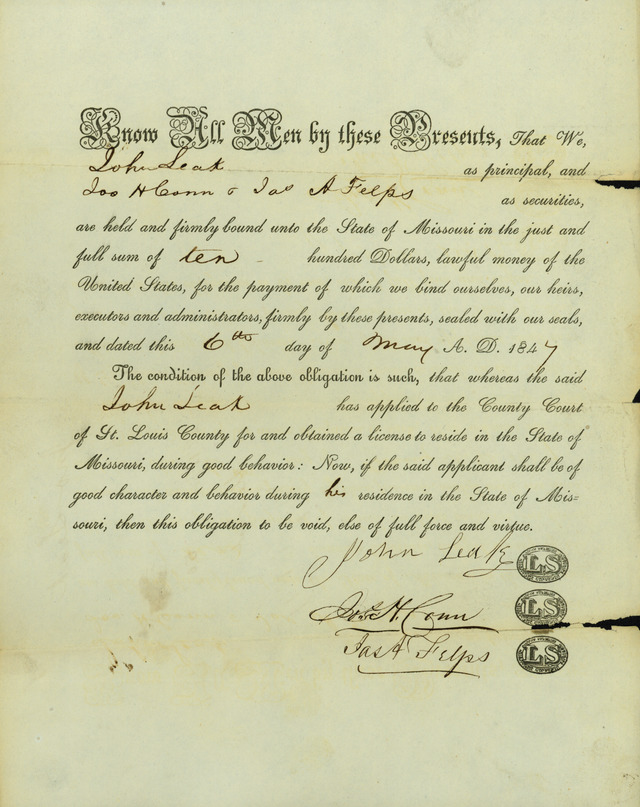 Know All Men by these Presents, That We,
John Leak as principal, and
Jos H Conn & Jas A Felps as securities,
are held and firmly bound unto the State of Missouri in the just and
full sum of ten - hundred Dollars, lawful money of the
United States, for the payment of which we bind ourselves, our heirs,
executors and administrators, firmly by these presents, sealed with our seals,
and dated this 6th day of May A. D. 1847
The condition of the above obligation is such, that whereas the said
John Leak has applied to the County Court
of St. Louis County for and obtained a license to reside in the State of
Missouri, during good behavior: Now, if the said applicant shall be of
good character and behavior during his residence in the State of Mis=
souri, then this obligation to be void, else of full force and virtue.
John Leak
LS
Jos H. Conn
LS
Jas A Felps
LS